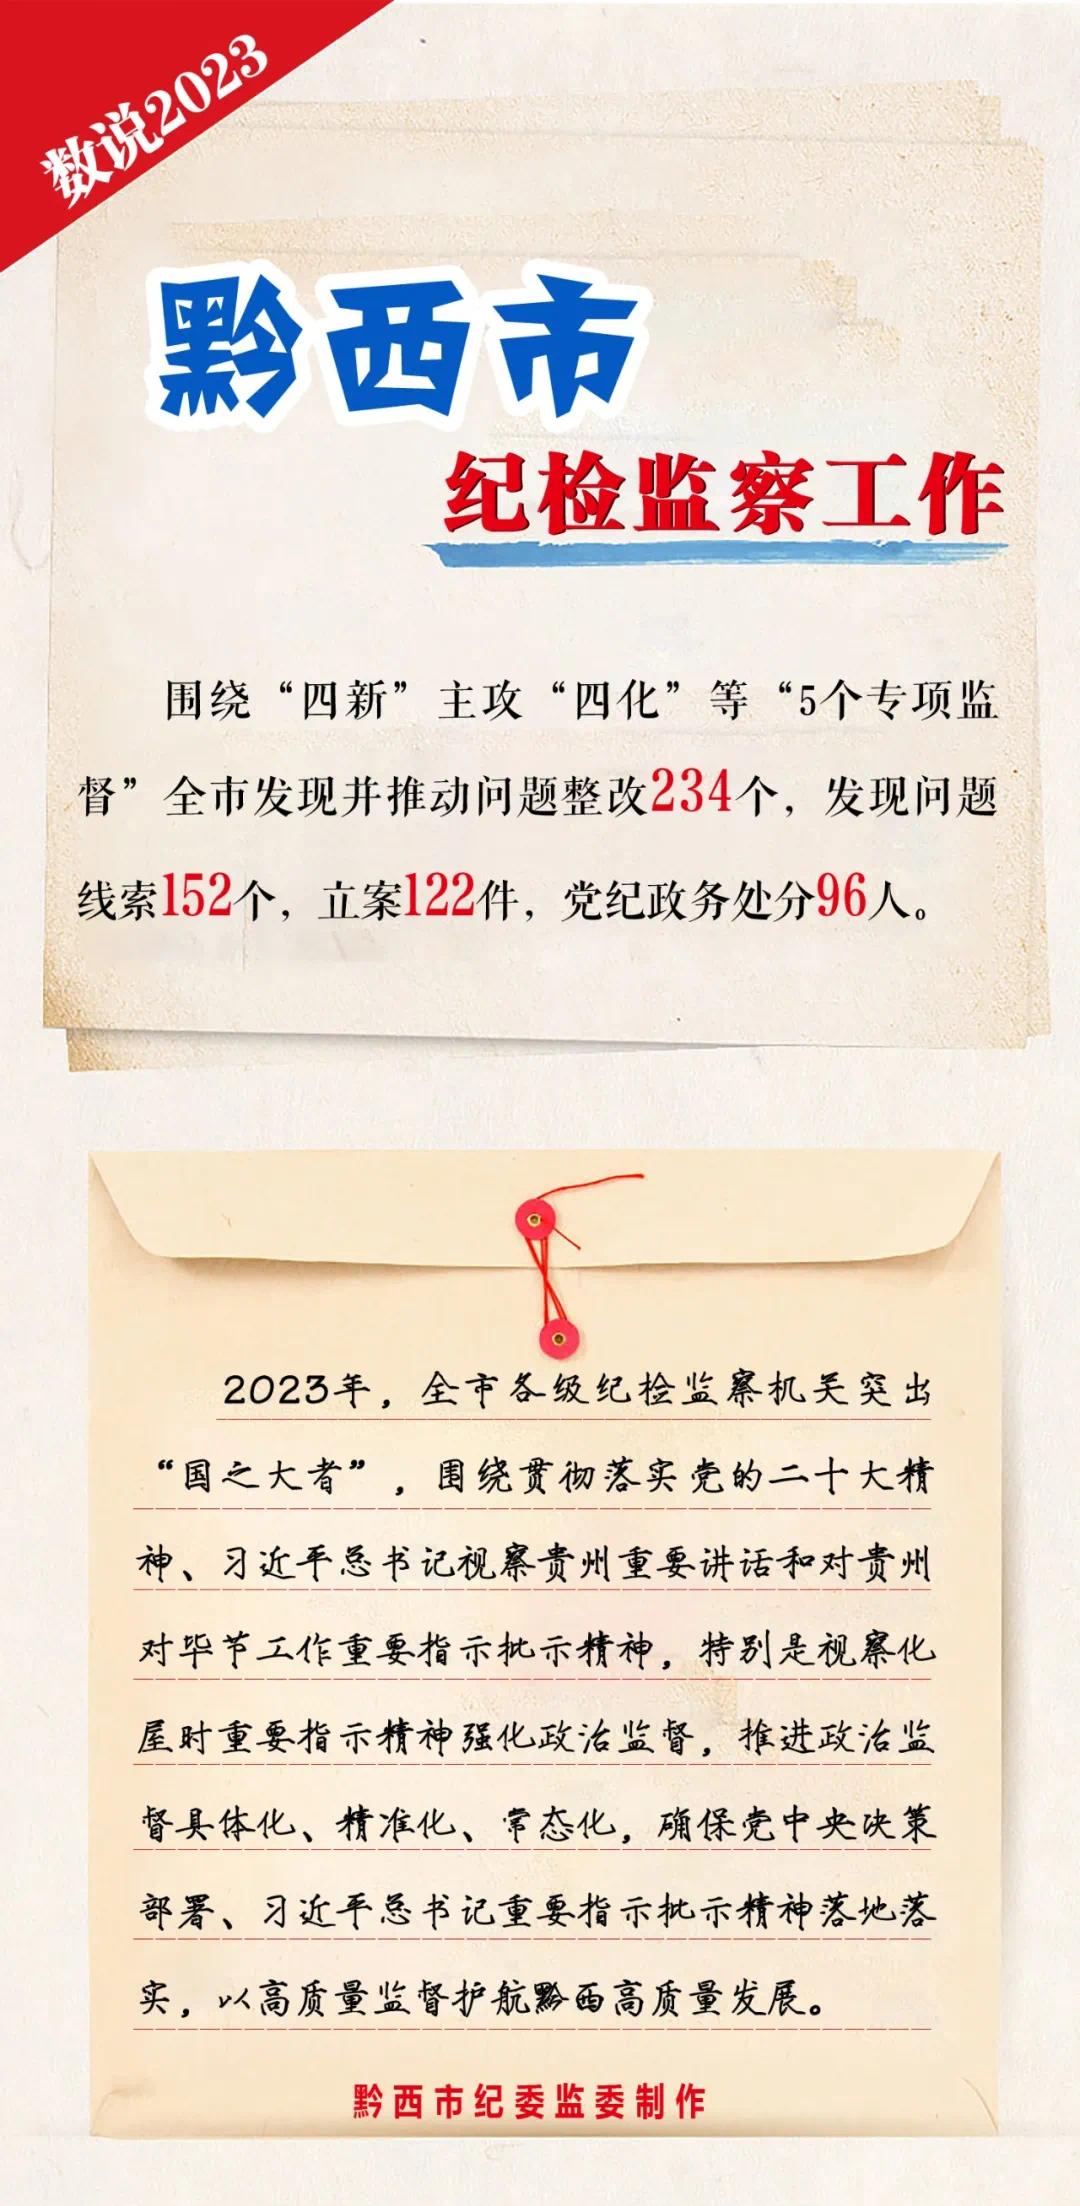 数说2023
黔西市
纪检监察工作
围绕“四新”主攻“四化”等“5个专项监
督”全市发现并推动问题整改234个，发现问题
线索152个，立案122件，党纪政务处分96人。
2023年，全市各级纪检监察机关突出
“国之大者”，围绕贯彻落实党的二十大精
神、习近平总书记视察贵州重要讲话和对贵州
对毕节工作重要指示批示精神，特别是视察化
屋时重要指示精神强化政治监督，推进政治监
督具体化、精准化、常态化，确保党中央决策
部署、习近平总书记重要指示批示精神落地落
实，以高质量监督护航黔西高质量发展。
黔西市纪委监委制作